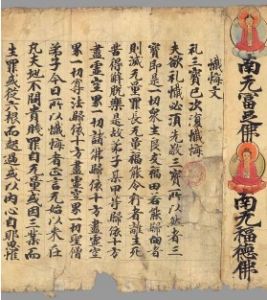 南无佛
南无福德佛
懺悔文
礼三寶已次復懺悔
夫欲礼懺必須先敬三寶所以然者三
寶即是一切衆生良友福田若能歸向者
則滅无量罪長无量福能令行者離生死
苦得解脫樂是故弟子某甲等歸依十方
盡虛空界一切諸佛歸依十方盡虛空
界一切尊法歸依十方盡虛空界一切聖僧
弟子今日所以懺悔者正言无始以來在
凡夫地不問貴賤罪自无量或因三業而
生罪或從六根而起過或以内心自耶思惟